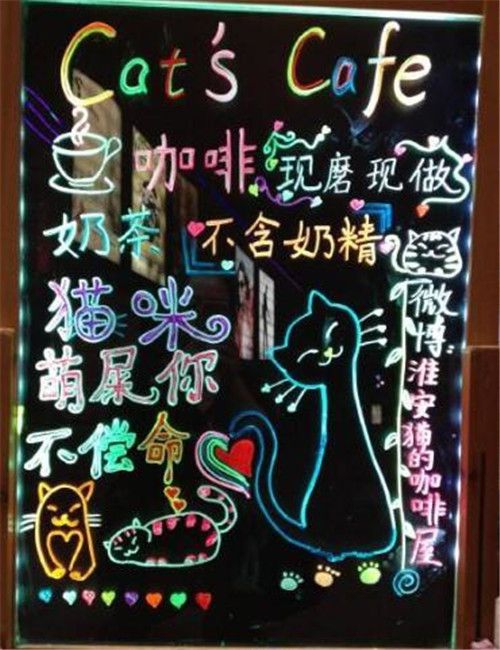 Cat's Cafe
咖啡 现磨现做
奶茶 不含奶精
猫咪
萌屎你
不偿命
微博:淮安猫的咖啡屋